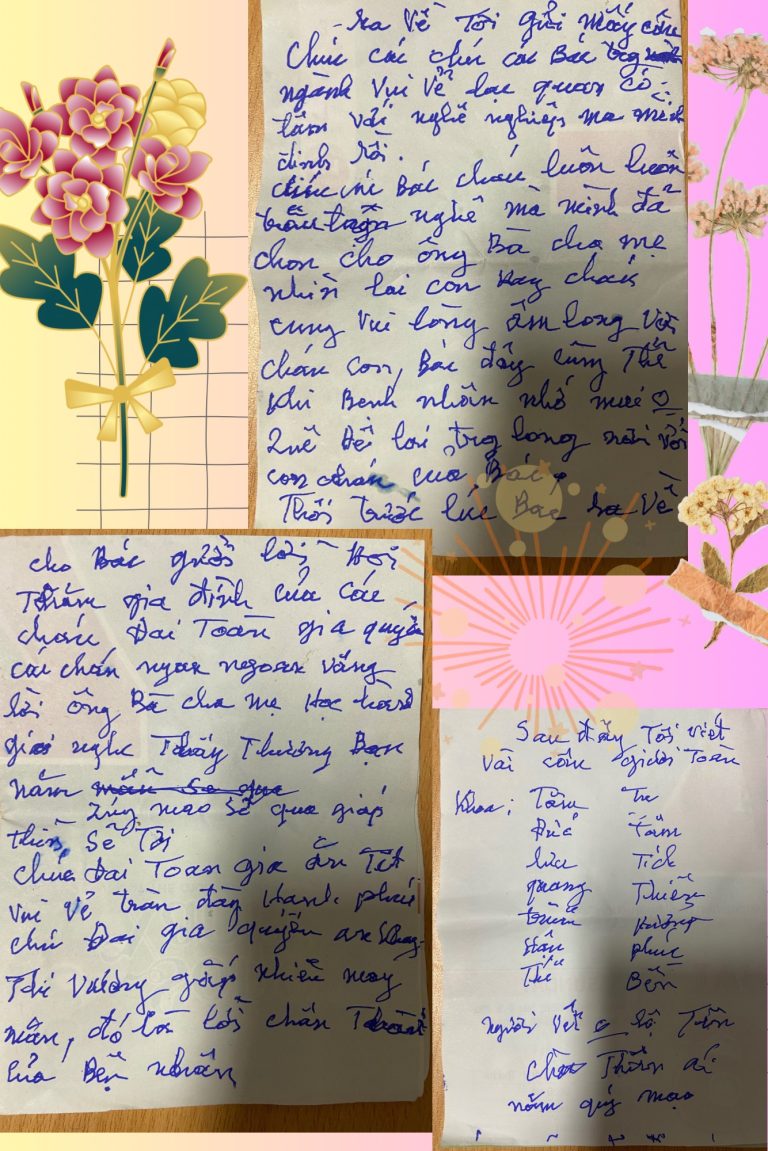 ra Về Tôi gửi mấy câu
Chúc các chú các Bác
ngành Vui Vẽ lac quan có
tâm Với nghề nghiệp ma mình
định rồi.
Bác cháu luôn luôn
nghề mà mình đã
chon cho ông Bà cha mẹ
nhìn lai con hay cháu
cung Vui lòng ấm long Với
cháu con, Bác đây cũng Thế
khi Benh nhân nhỏ
Quê để lai trg long nơi Với
con cháu cua Bác,
Thôi trước lúc Bac ra Về
cho Bác gưởi lời Hỏi
Thăm gia đình của các
cháu Đai Toàn gia quyến
các cháu ngan ngoan Vâng
lời ông Bà cha mẹ Học hành
giỏi nghe Thầy Thương Bạn
năm
Quý mao sẽ qua giáp
thìn Sẽ Tới
chúc Đai Toan gia ăn Tết
Vui Vẻ tràn đầy Hanh phúc
chú Đai gia quyến an khang
Thi Vương gặp nhiều may
mắn, đó là lời chân Thành
của Bện nhân
Sau đây Tôi viết
Vài câu gưởi Toàn
Khoa: Tâm Tu
Đức Tâm
lưu Tích
quang Thiên
phúc
Thế Bền
người Viết lộ Tên
Thân ái
năm quý mao